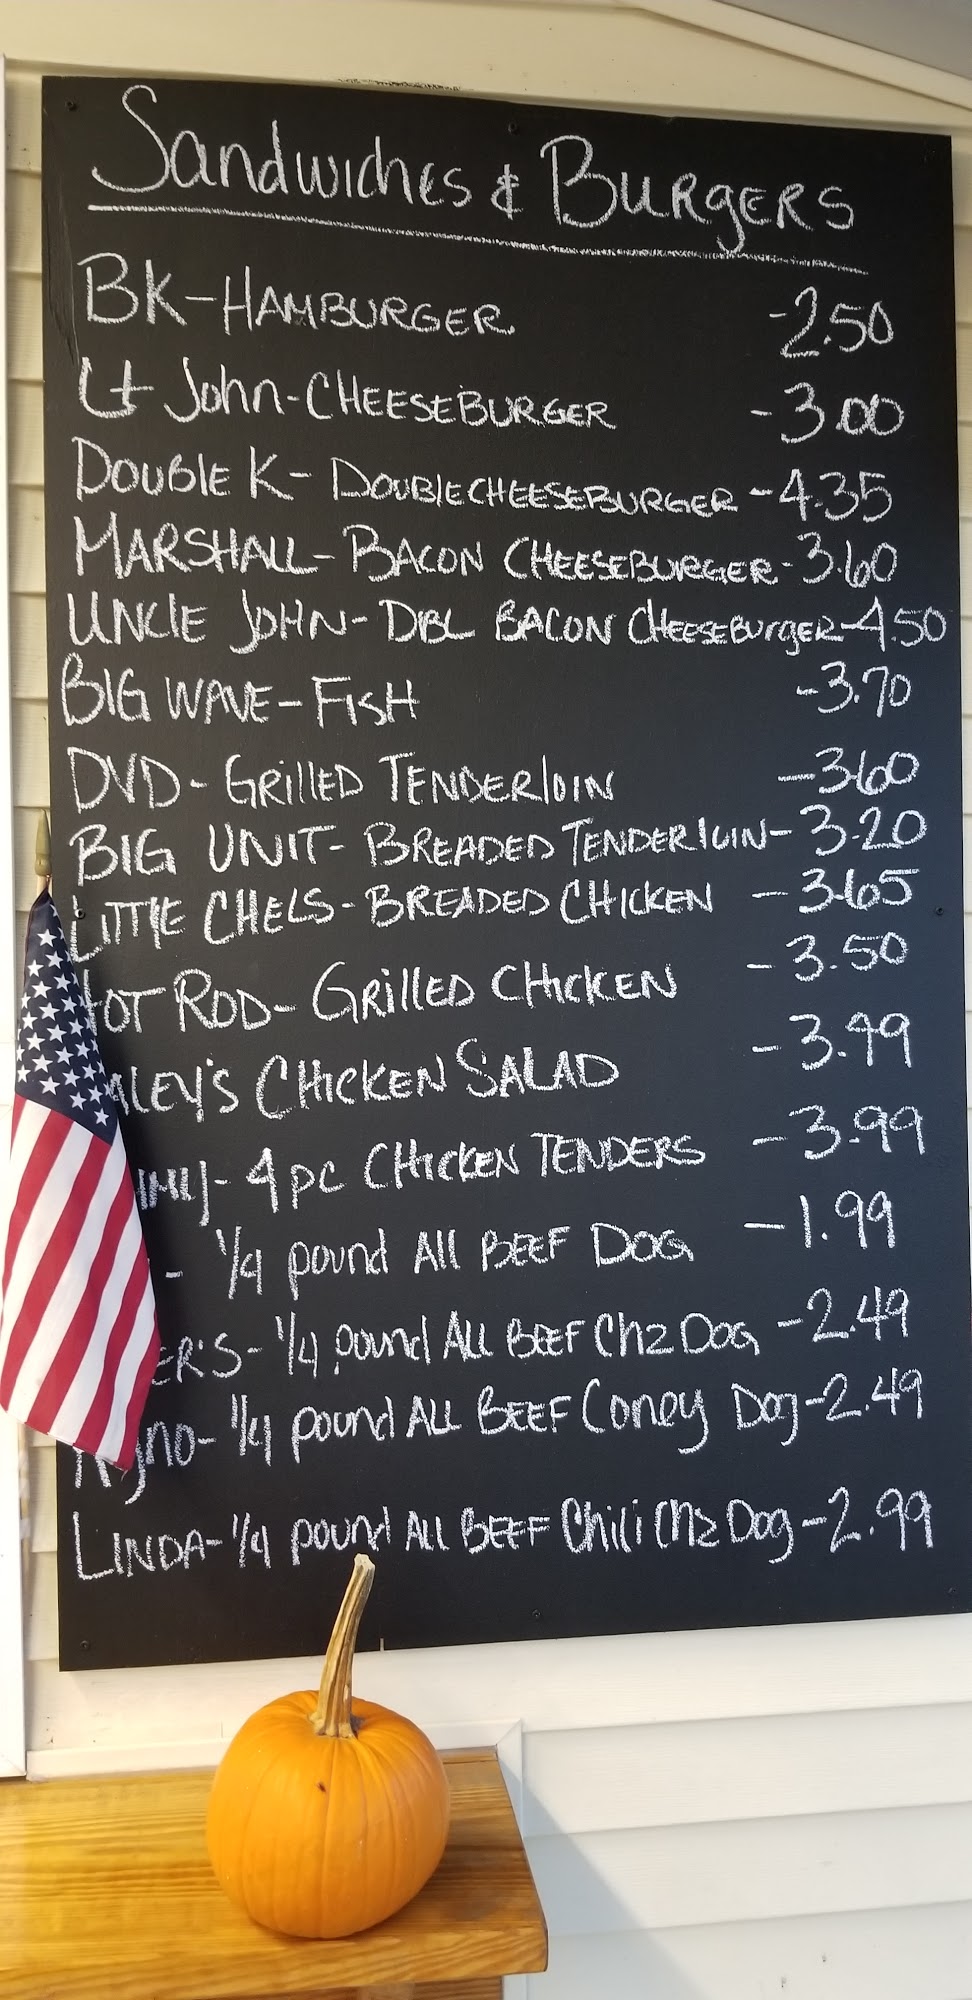 Sandwiches & BURgERS
BK-HAMBURGER -2.50
Lt John-CHEESEBURGER -3.00
DOUBLE K- DOUBlECHEESEBURGER -4.35
MARSHALL- BACON CHEESEBURGER-3.60
UNCLE JOHN- DBL BACON CHEESEBURgER-4.50
BIG WAVE-FISH -3.70
DVD- GRillED TENDERlOiN -3.60
BIG UNIT- BREADED TENDERlOIN-3.20
LITTlE CHELS-BREADED CHICKEN -3.65
HOT ROD- GRillED CHICKEN -3.50
CHICKEN SALAD -3.99
- 4 pc CHICKEN TENDERS -3.99
- 1/4 pound All BEEF DOG -1.99
- 1/4 pound ALL BEEF Chz DOG -2.49
- 1/4 pound ALL BEEF Coney Dog-2.49
LINDA-1/4 pound ALL BEEF Chili Chz Dog-2.99